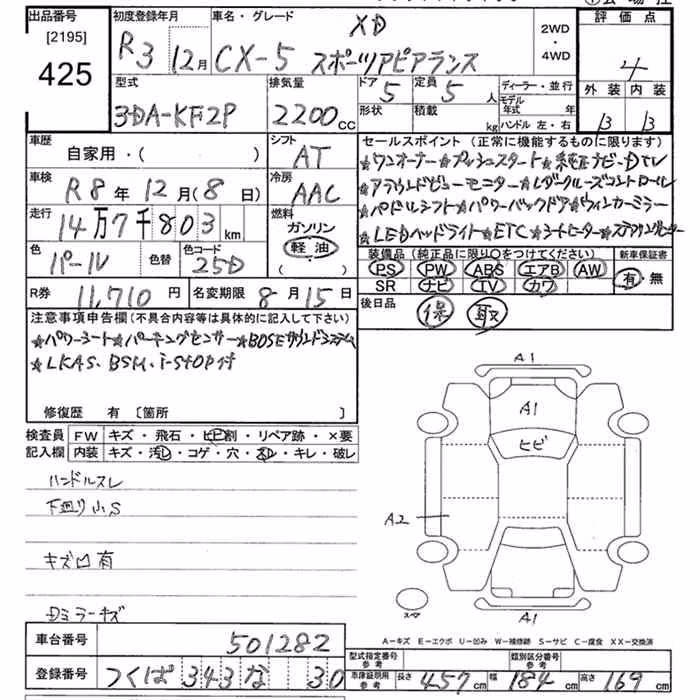 出品番号
[2195]
425
初度登録年月 車名・グレード
R3 12月 CX-5 XD スポーツアピアランス
2WD
・
4WD
評価点
4
外装 内装
B B
型式 排気量
3DA-KF2P 2200cc
ドア 5 定員 5 人
形状 積載 kg
ディーラー・並行
モデル年式 年
ハンドル 左・右
車歴
自家用・( )
シフト
AT
車検
R8年12月(8日)
冷房
AAC
走行
14万7千803km
燃料
ガソリン
軽油
( )
色 パール 色替 色コード 25D
R券 11,710円 名変期限 8月15日
セールスポイント (正常に機能するものに限ります)
★ワンオーナー★プッシュスタート★純正ナビ・DTV
★アラウンドビューモニター★レダークルーズコントロール
★パドルシフト★パワーバックドア★ウィンカーミラー
★LEDヘッドライト★ETC★シートヒーター★ステアリングヒーター
装備品 (純正品に限り○をつけてください) 新車保証書
PS PW ABS エアB AW
SR ナビ TV カワ
有・無
後日品 保 取
注意事項申告欄(不具合内容等は具体的に記入して下さい)
★パワーシート★パーキングセンサー★BOSEサウンドシステム
★LKAS、BSM、i-STOP付
修復歴 有 〔箇所 〕
検査員 FW キズ・飛石・ヒビ割・リペア跡・×要
記入欄 内装 キズ・汚レ・コゲ・穴・スレ・キレ・破レ
ハンドルスレ
下廻り小S
キズ凹有
Dミラーキズ
A1
A1
ヒビ
A2
スペア
A1
A-キズ E-エクボ U-凹み W-補修跡 S-サビ C-腐食 XX-交換済
車台番号 501282
登録番号 つくば 343 な 30
型式指定番号 参考 類別区分番号 参考
車庫証明用 参考 長さ 457cm 幅 184cm 高さ 169cm